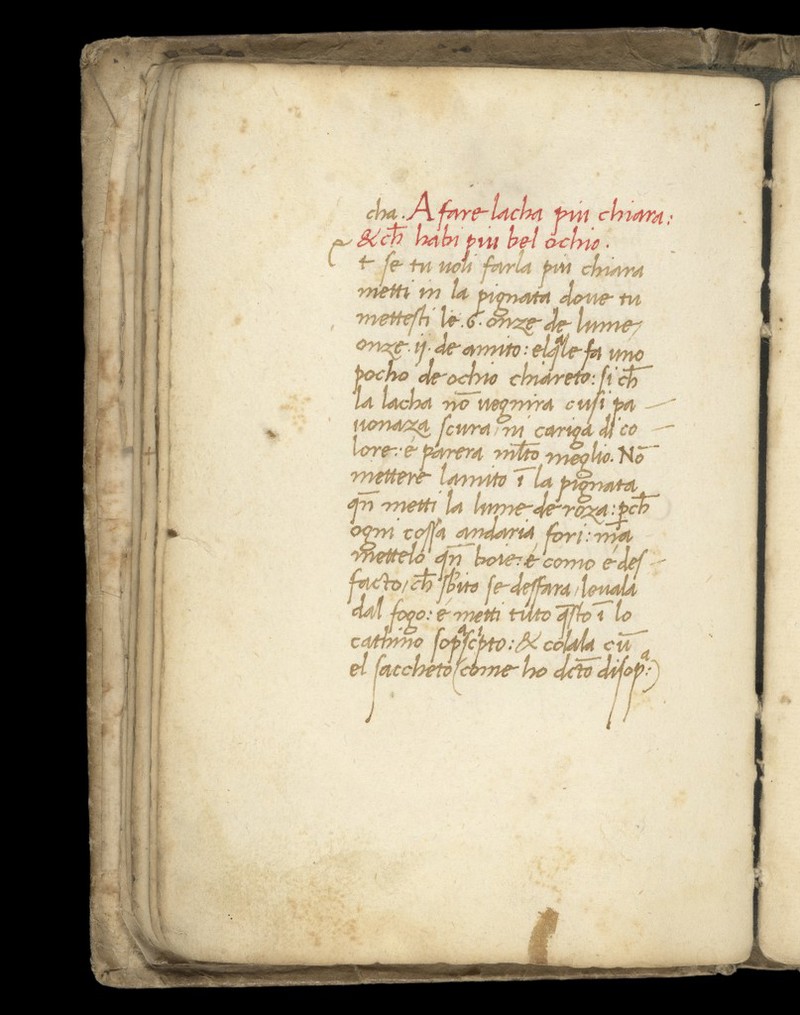 cha. A fare lacha piu chiara:
& ch̄ habi piu bel ochio.
Et se tu uoli farla piu chiara
metti in la pignata doue tu
mettesti le .6. onze de lume,
onze .ij. de amito: elq̄le fa uno
pocho de ochio chiareto: si ch̄
la lacha nō uegnira cusi pa
uonaza scura, ni cariga di co
lore: é parera ml̄to meglio. Nō
mettere lamito ī la pignata
qn̄ metti la lume de roza: p̱ch̄
ogni cossa andaria fori: ma
mettelo qn̄ boie: é como e des
facto, ch̄ sb̄ito se desfara, leuala
dal fogo: é metti tuto q̄sto ī lo
cathino sop̱ᵃscⁱpto: & colala cū
el saccheto (come ho dc̄to disop̱ᵃ:)